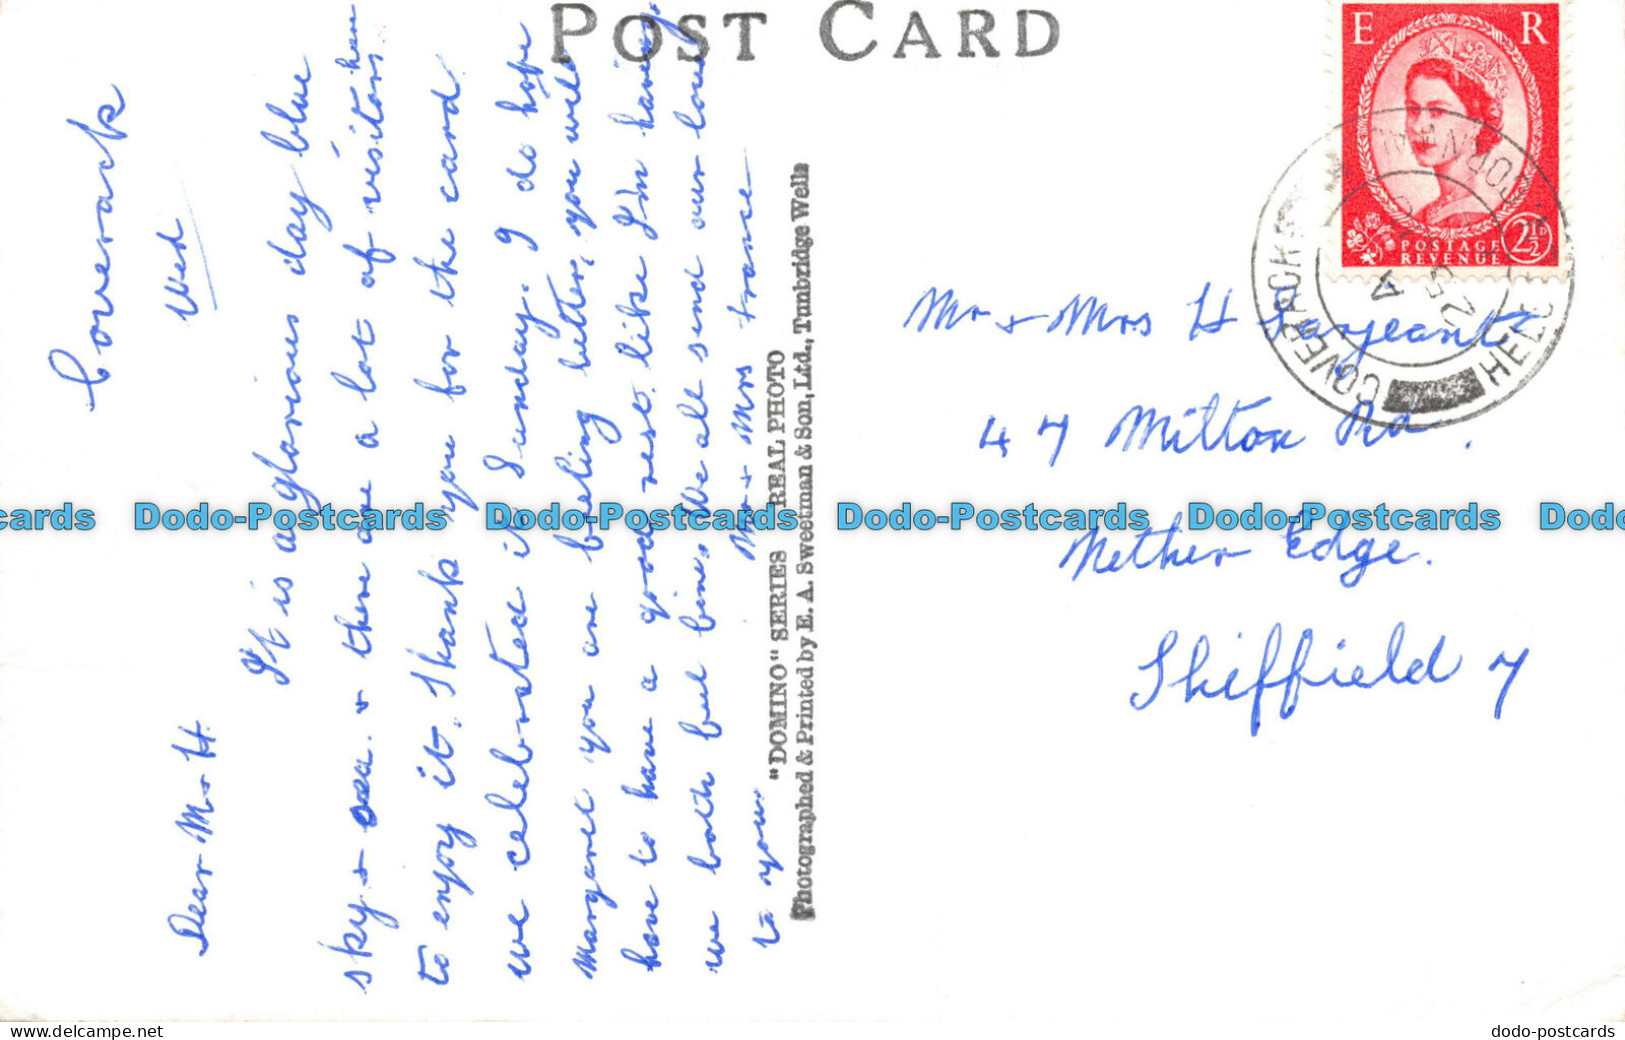 POST CARD
E R
POSTAGE
REVENUE
2½D
COVERACK
HELSTON
CORNWALL
25
A
Coverack
Wed
Dear M & H
It is a glorious day blue
sky & sea. & there are a lot of visitors here
to enjoy it. Thank you for the card
we celebrated it Sunday. I do hope
Margaret you are feeling better, you will
have to have a good rest like I'm having
we both feel fine. We all send our love
to you. Mr & Mrs France
"DOMINO" SERIES REAL PHOTO
Photographed & Printed by E. A. Sweetman & Son, Ltd., Tunbridge Wells
Mr & Mrs H Sargeant
47 Milton Rd.
Nether Edge.
Sheffield 7
cards Dodo-Postcards Dodo-Postcards Dodo-Postcards Dodo-Postcards Dodo
www.delcampe.net
dodo-postcards